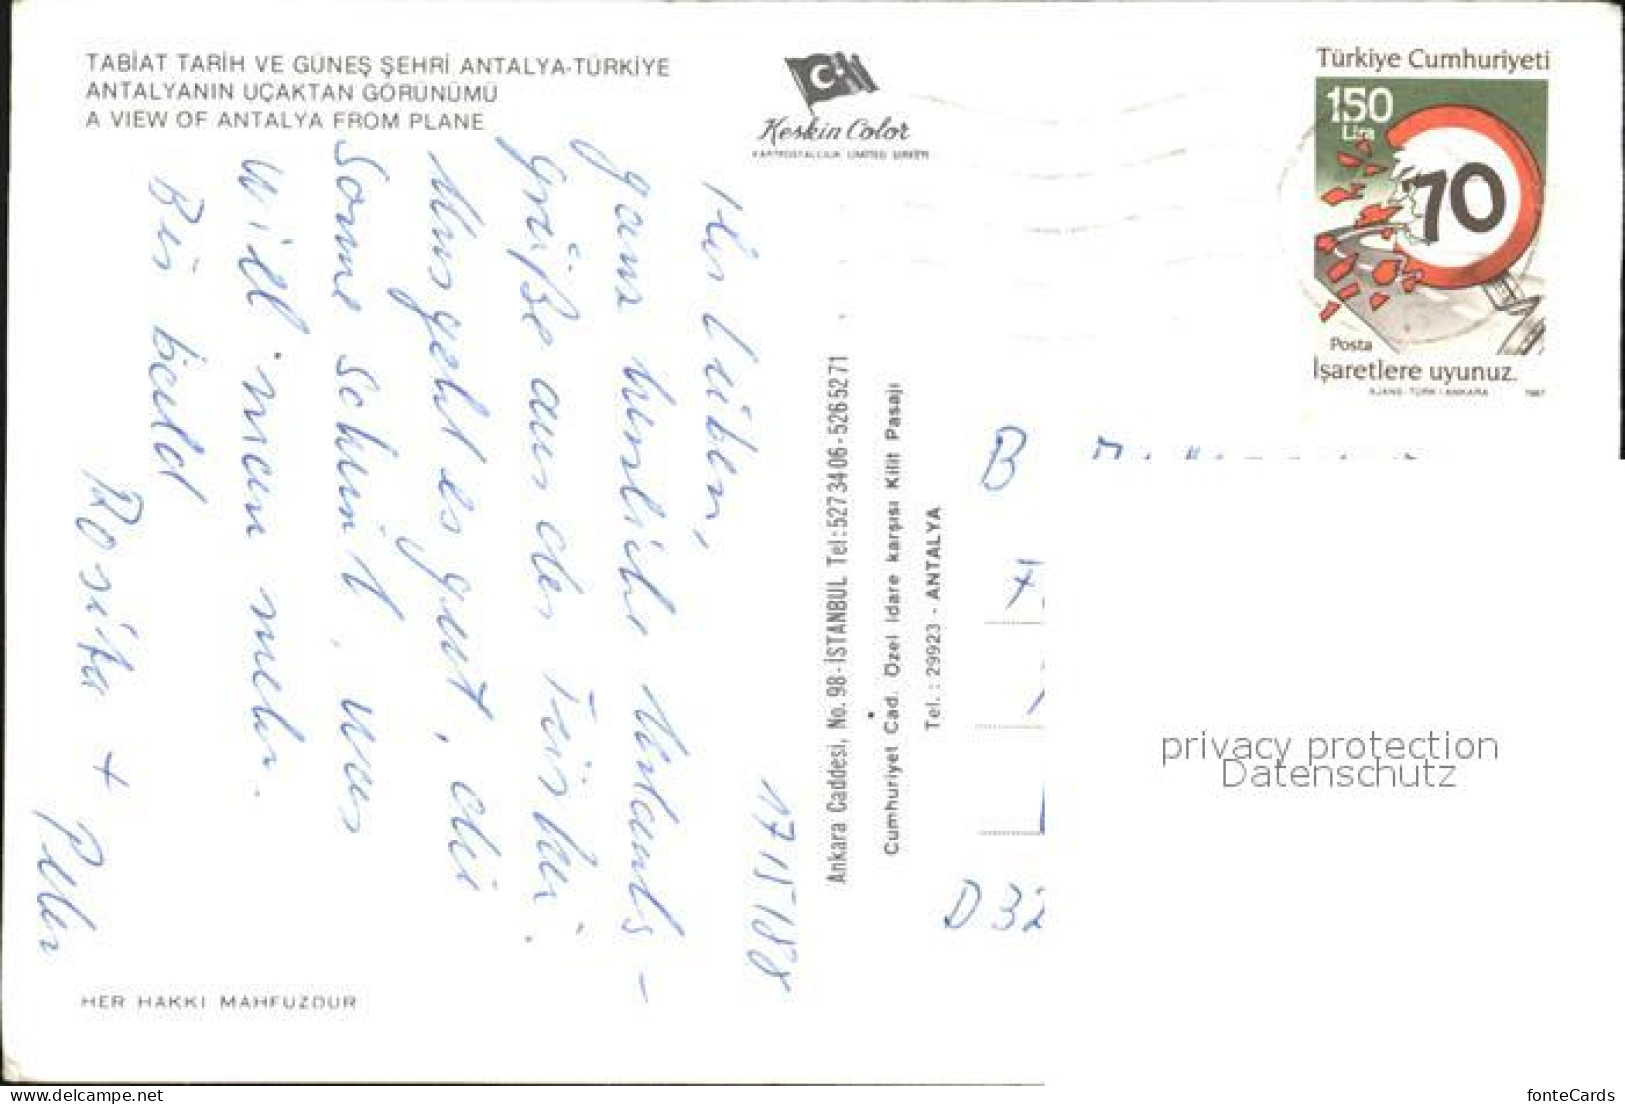 TABİAT TARİH VE GÜNEŞ ŞEHRİ ANTALYA-TÜRKİYE
ANTALYANIN UÇAKTAN GÖRÜNÜMÜ
A VIEW OF ANTALYA FROM PLANE
Keskin Color
KARTPOSTALCILIK LIMITED ŞİRKETİ
Türkiye Cumhuriyeti
150
Lira
70
Posta
İşaretlere uyunuz.
AJANS-TÜRK / ANKARA 1987
17/5/88
Ihr Lieben,
ganz herzliche Urlaubs-
grüße aus der Türkei.
Uns geht es gut, die
Sonne scheint, was
will man mehr.
Bis bald
Rosita + Peter
Ankara Caddesi, No. 98-İSTANBUL Tel: 527 34 06 - 526 52 71
Cumhuriyet Cad. Özel İdare karşısı Kilit Pasajı
Tel. : 29923 - ANTALYA
B
D 32
HER HAKKI MAHFUZDUR
privacy protection
Datenschutz
www.delcampe.net
fonteCards